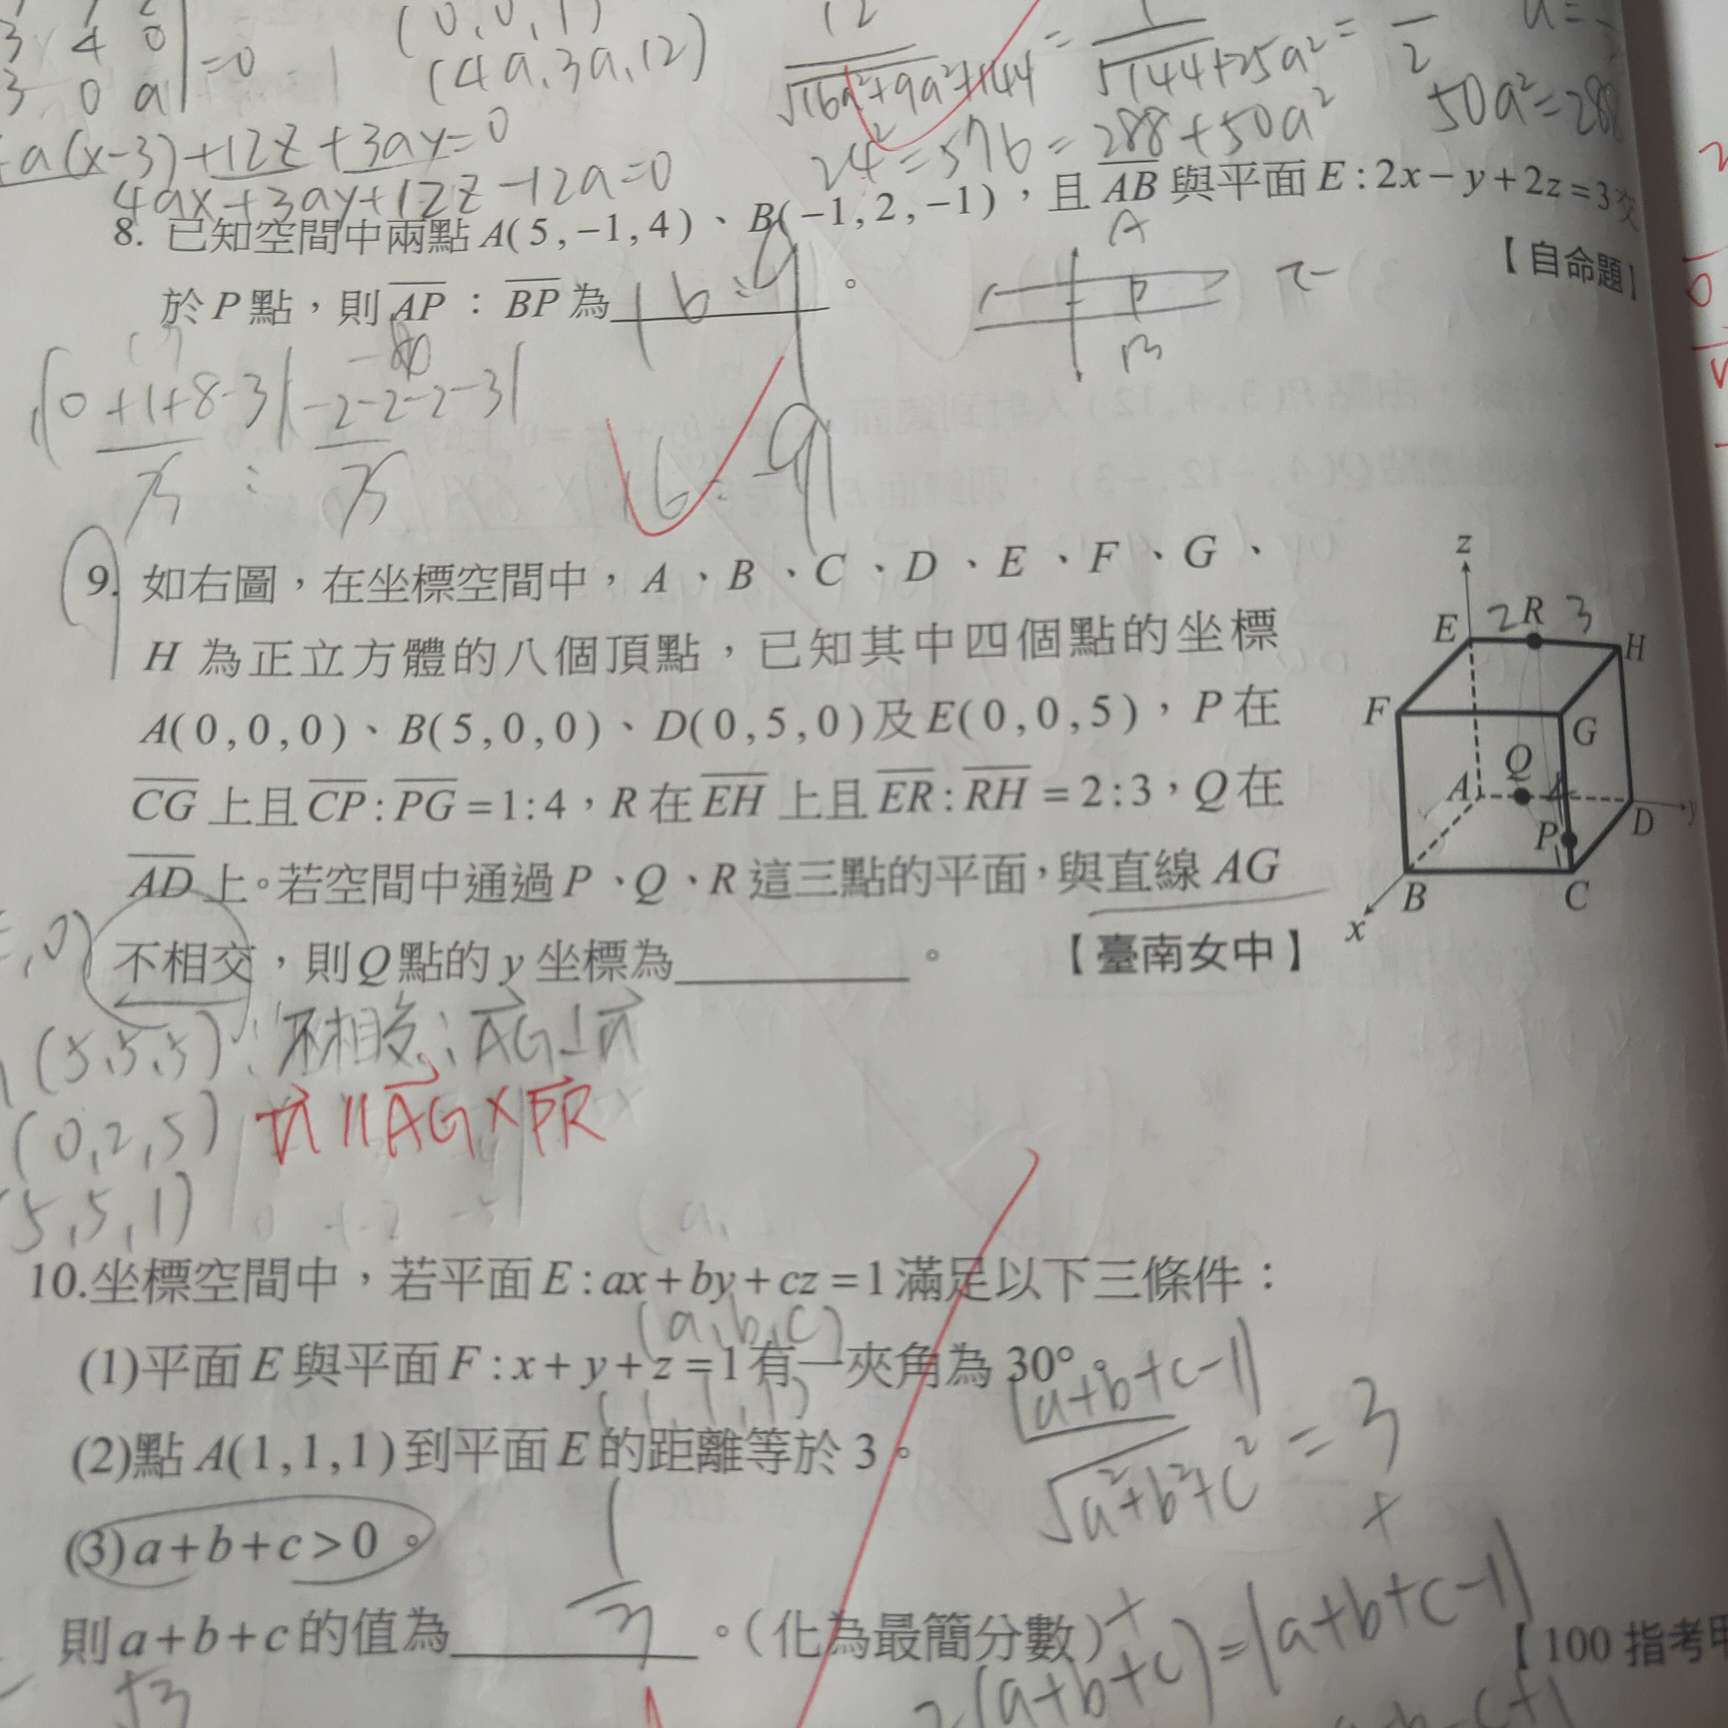 3 4 0
3 0 a | =0
(0,0,1)
(4a,3a,12)
12/√16a²+9a²+144 = 1/√144+25a² = /2
50a²=288
24²=576=288+50a²
-a(x-3)+12z+3ay=0
4ax+3ay+12z-12a=0
8. 已知空間中兩點A(5,-1,4)、B(-1,2,-1),且AB與平面E:2x-y+2z=3交
【自命題】
於P點,則AP:BP為 16:9 。
A
P
B
|10+1+8-3| |-2-2-2-3|
16 : 9
9. 如右圖,在坐標空間中,A、B、C、D、E、F、G、
H為正立方體的八個頂點,已知其中四個點的坐標
A(0,0,0)、B(5,0,0)、D(0,5,0)及E(0,0,5),P在
CG上且CP:PG=1:4,R在EH上且ER:RH=2:3,Q在
AD上。若空間中通過P、Q、R這三點的平面,與直線AG
不相交,則Q點的y坐標為 。 【臺南女中】
z
E 2 R 3 H
F G
A Q D y
P
B C
x
,0)
(5,5,5) ∵不相交∴AG⊥n
(0,2,5) n//AG×PR
5,5,1)
10.坐標空間中,若平面E:ax+by+cz=1滿足以下三條件:
(a,b,c)
(1)平面E與平面F:x+y+z=1有一夾角為30°。
(1,1,1)
(2)點A(1,1,1)到平面E的距離等於3。
|a+b+c-1|/√a²+b²+c² = 3
(3)a+b+c>0。
則a+b+c的值為 1/3 。(化為最簡分數) 【100指考甲
2(a+b+c)=|a+b+c-1|
√3